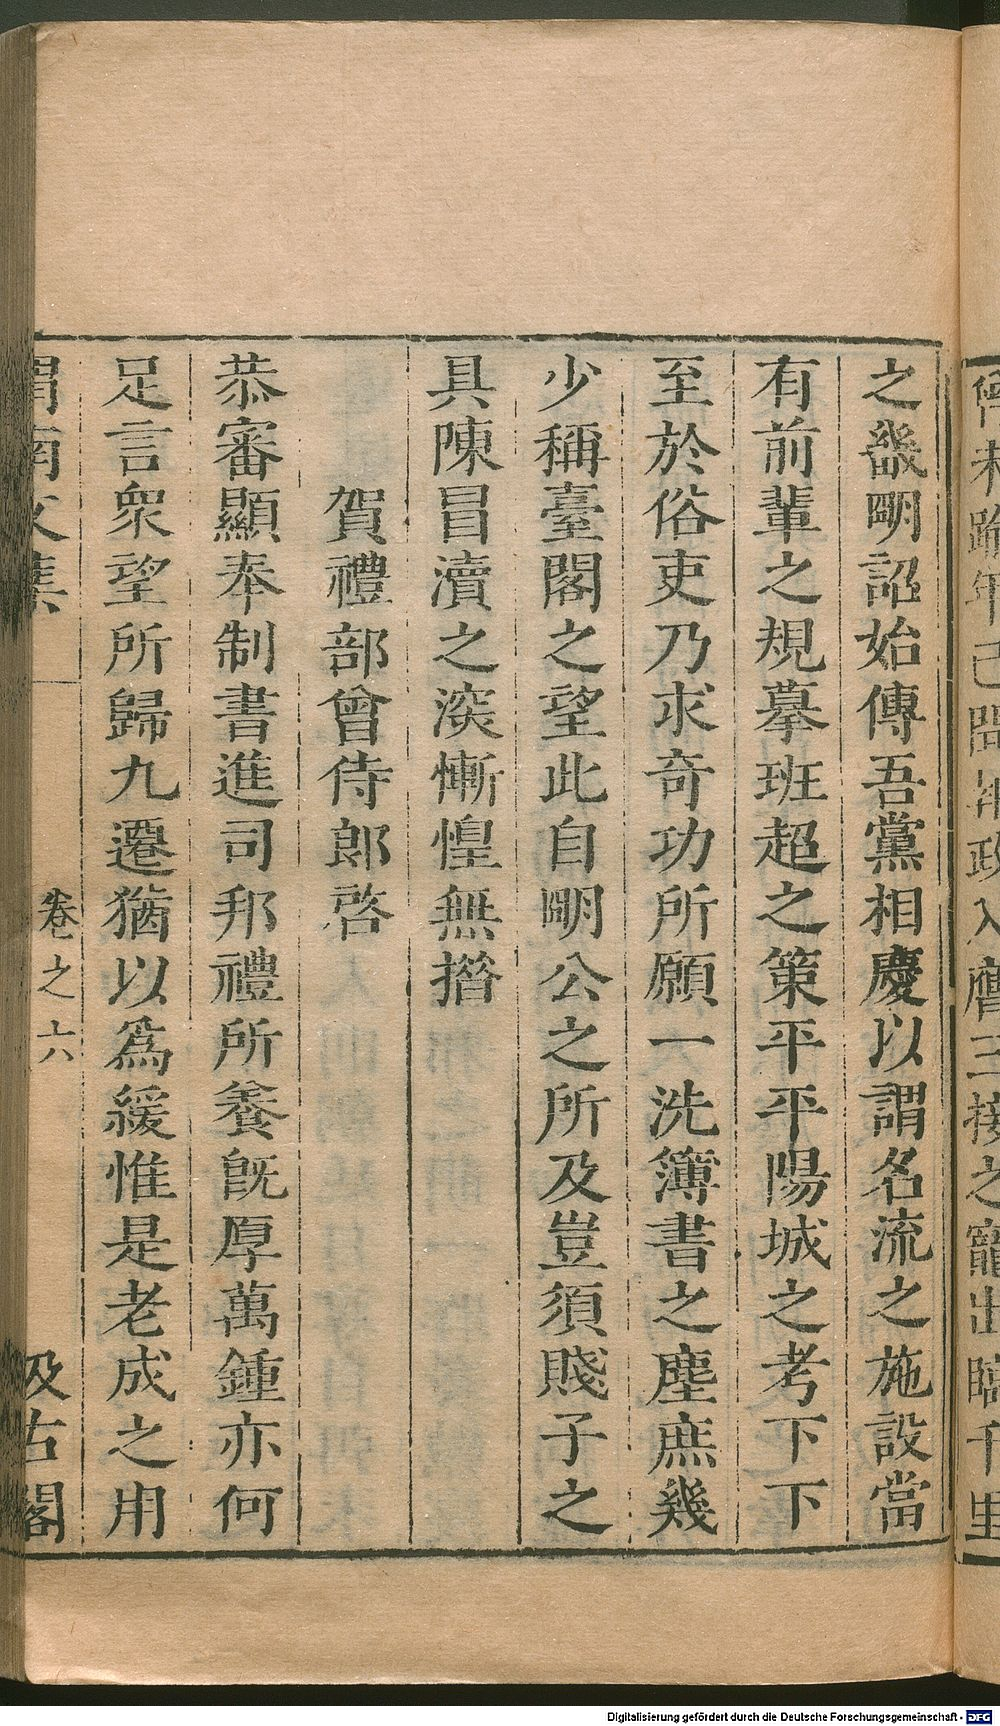 之畿明詔始傳吾黨相慶以謂名流之施設當
有前輩之規摹班超之策平平陽城之考下下
至於俗吏乃求奇功所願一洗簿書之塵庶幾
少稱臺閣之望此自明公之所及豈須賤子之
具陳冒瀆之深慚惶無措
賀禮部曾侍郎啓
恭審顯奉制書進司邦禮所養旣厚萬鍾亦何
足言衆望所歸九遷猶以爲緩惟是老成之用
渭南文集
卷之六
汲古閣
Digitalisierung gefördert durch die Deutsche Forschungsgemeinschaft - DFG